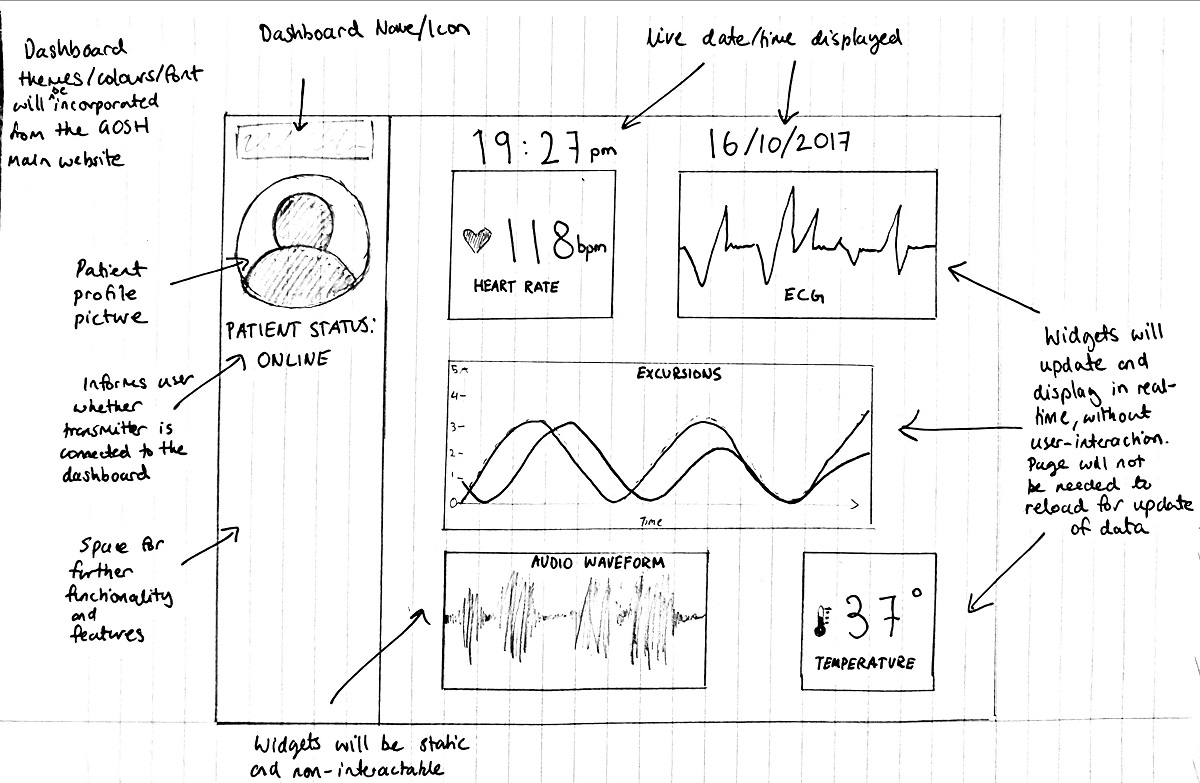 Dashboard
themes/colours/font
will be incorporated
from the GOSH
main website
Dashboard Name/Icon
Live date/time displayed
19:27pm
16/10/2017
118bpm
HEART RATE
ECG
Patient
profile
picture
PATIENT STATUS:
ONLINE
Informs user
whether
transmitter is
connected to the
dashboard
Space for
further
functionality
and
features
EXCURSIONS
5
4
3
2
1
0
Time
Widgets will
update and
display in real-
time, without
user-interaction.
Page will not
be needed to
reload for update
of data
AUDIO WAVEFORM
37°
TEMPERATURE
Widgets will be static
and non-interactable